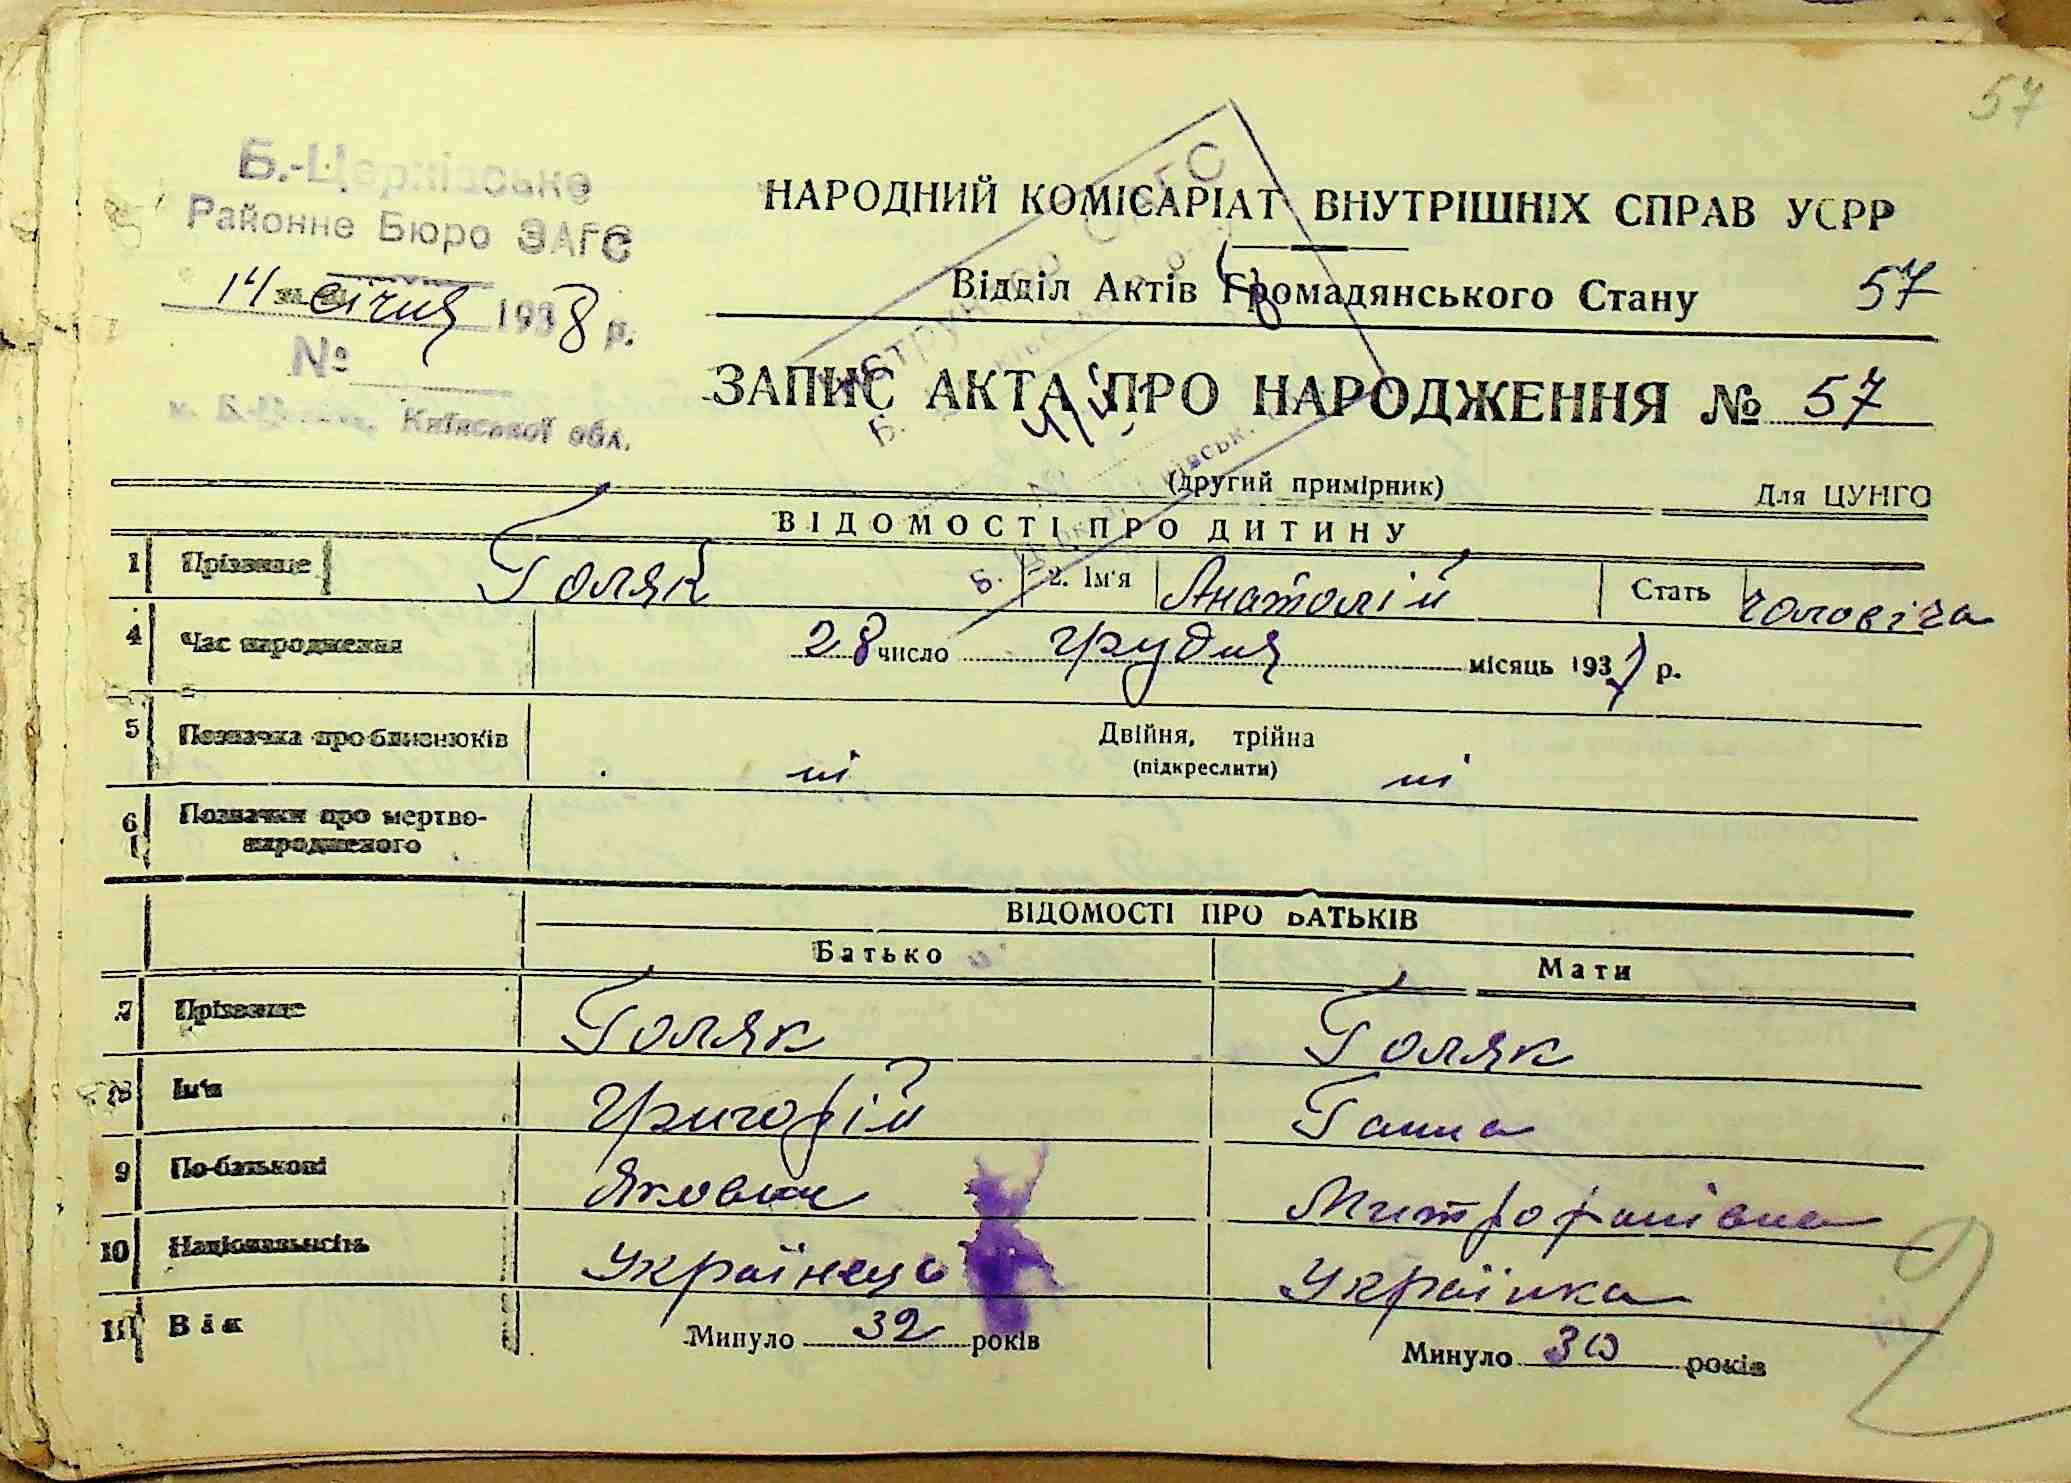 57
Б.-Церківське
Районне Бюро ЗАГС
14 січня 1938 р.
№
м. Б-Церква, Київської обл.
НАРОДНИЙ КОМІСАРІАТ ВНУТРІШНІХ СПРАВ УСРР
Відділ Актів Громадянського Стану 57
ЗАПИС АКТА ПРО НАРОДЖЕННЯ № 57
(другий примірник) Для ЦУНГО
ВІДОМОСТІ ПРО ДИТИНУ
1 Прізвище Голяк 2. Ім'я Анатолій Стать чоловіча
4 Час народження 28 число грудня місяць 1937 р.
5 Позначка про близнюків ні Двійня, трійна ні
(підкреслити)
6 Позначки про мертво-
народженого
ВІДОМОСТІ ПРО БАТЬКІВ
Батько Мати
7 Прізвище Голяк Голяк
8 Ім'я Григорій Ганна
9 По-батькові Якович Митрофанівна
10 Національність Українець Українка
11 Вік Минуло 32 років Минуло 30 років